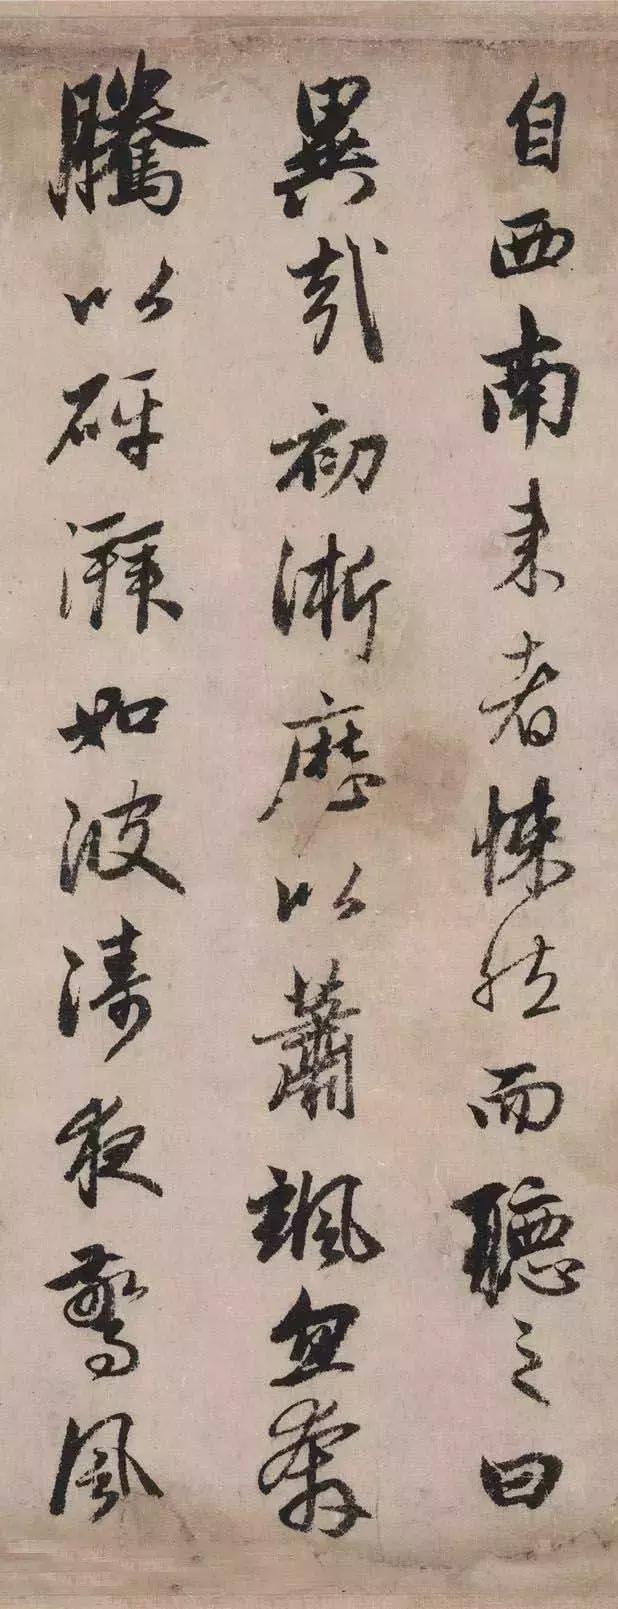 自西南来者悚然而聽之曰
異哉初淅歴以蕭颯忽奔
騰以砰湃如波濤夜驚風